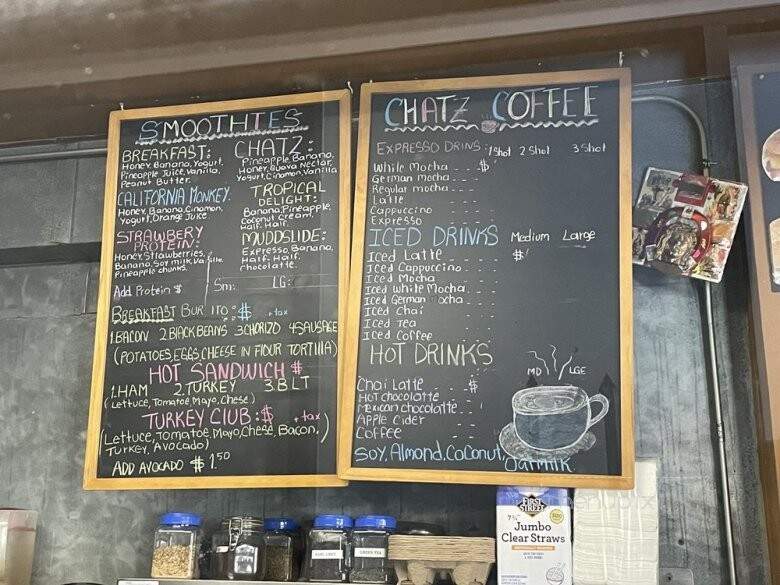 SMOOTHIES
BREAKFAST:
Honey, Banana, Yogurt,
Pineapple Juice, Vanilla,
Peanut Butter.
CALIFORNIA MONKEY.
Honey, Banana, Cinamon,
Yogurt, Orange Juice
STRAWBERY
PROTEIN:
Honey, Strawberries,
Banana, Soy milk, Va ille
Pineapple chunks.
Add Protein $
CHATZ:
Pineapple, Banana,
Honey, Guava Nectar,
Yogurt, Cinamon, Vanilla
TROPICAL
DELIGHT:
Banana, Pineapple,
coconut cream,
Half-Half.
MUDDSLIDE:
Expresso, Banana,
Half-Half,
chocolatte.
Sm: LG:
BREAKFAST BUR ITO: $ +tax
1.BACON 2.BlACK BEANS 3.CHORIZO 4.SAUSAGE
(POTATOES, EGGS, CHEESE IN FlOUR TORTIllA)
HOT SANDWICH $
1.HAM 2.TURKEY 3.B L T
(Lettuce, Tomatoe, Mayo, Chese)
TURKEY CLUB: $ +tax
(Lettuce, Tomatoe, Mayo, Chese, Bacon,
Turkey, Avocado)
ADD AVOCADO $ 1.50
CHATZ COFFEE
EXPRESSO DRINS: 1 Shot 2 Shot 3 Shot
While Mocha - - - $
German mocha - -
Regular mocha - - -
Latte
Cappuccino
Expresso
ICED DRINKS Medium Large
Iced Latte $
Iced Cappuccino
Iced Mocha
Iced White Mocha
Iced German ocha
Iced Chai
Iced Tea
Iced Coffee
HOT DRINKS
MD LGE
Chai Latte - - - $
Hot chocolatte
Mexican chocolatte
Apple Cider
Coffee
SOY, Almond, COCONUT,
Oat Milk
EARL GREY
GREEN TEA
FIRST
STREET
7¾"
Jumbo
Clear Straws